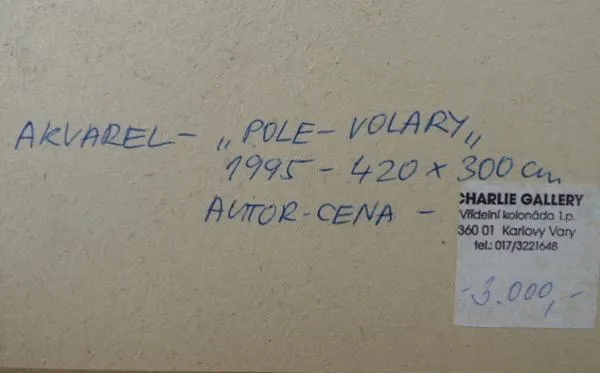 AKVAREL – „POLE – VOLARY„
1995 – 420 x 300 cm
AUTOR-CENA –
CHARLIE GALLERY
Vřídelní kolonáda 1.p.
360 01 Karlovy Vary
tel.: 017/3221648
-3.000,-